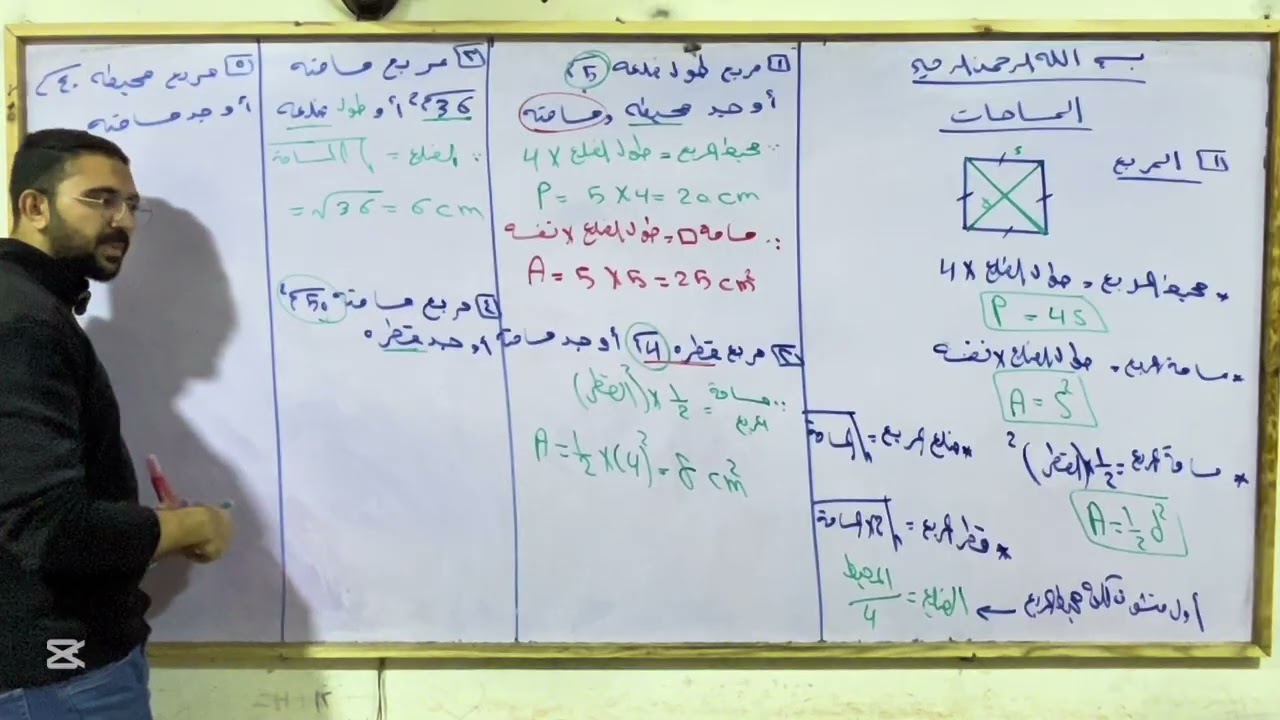 بسم الله الرحمن الرحيم
المساحات
1 المربع
s
* محيط المربع = طول الضلع × 4
P = 4s
* مساحة المربع = طول الضلع × نفسه
A = s²
* مساحة المربع = 1/2 × (القطر)²
A = 1/2 d²
* ضلع المربع = √المساحة
* قطر المربع = √2×المساحة
أول متشوف كلمة محيط المربع ← الضلع = المحيط/4
1 مربع طول ضلعه 5سم
أوجد محيطه ومساحته
∵ محيط المربع = طول الضلع × 4
P = 5 × 4 = 20 cm
∵ مساحة □ = طول الضلع × نفسه
A = 5 × 5 = 25 cm²
2 مربع قطره 4سم أوجد مساحته
∵ مساحة المربع = 1/2 × (القطر)²
A = 1/2 × (4)² = 8 cm²
3 مربع مساحته
36سم² أوجد طول ضلعه
∵ الضلع = √المساحة
= √36 = 6 cm
4 مربع مساحته 50سم²
أوجد قطره
5 مربع محيطه 40سم
أوجد مساحته